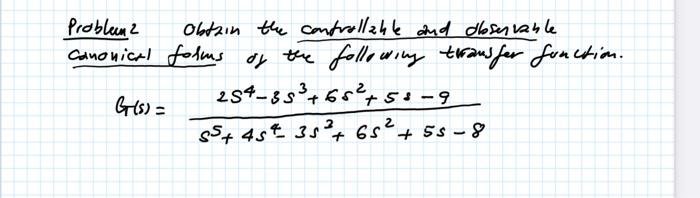 Problem 2 Obtain the controllable and observable
canonical forms of the following transfer function.
G(s) = 
2s⁴-3s³+6s²+5s-9
s⁵+4s⁴-3s³+6s²+5s-8